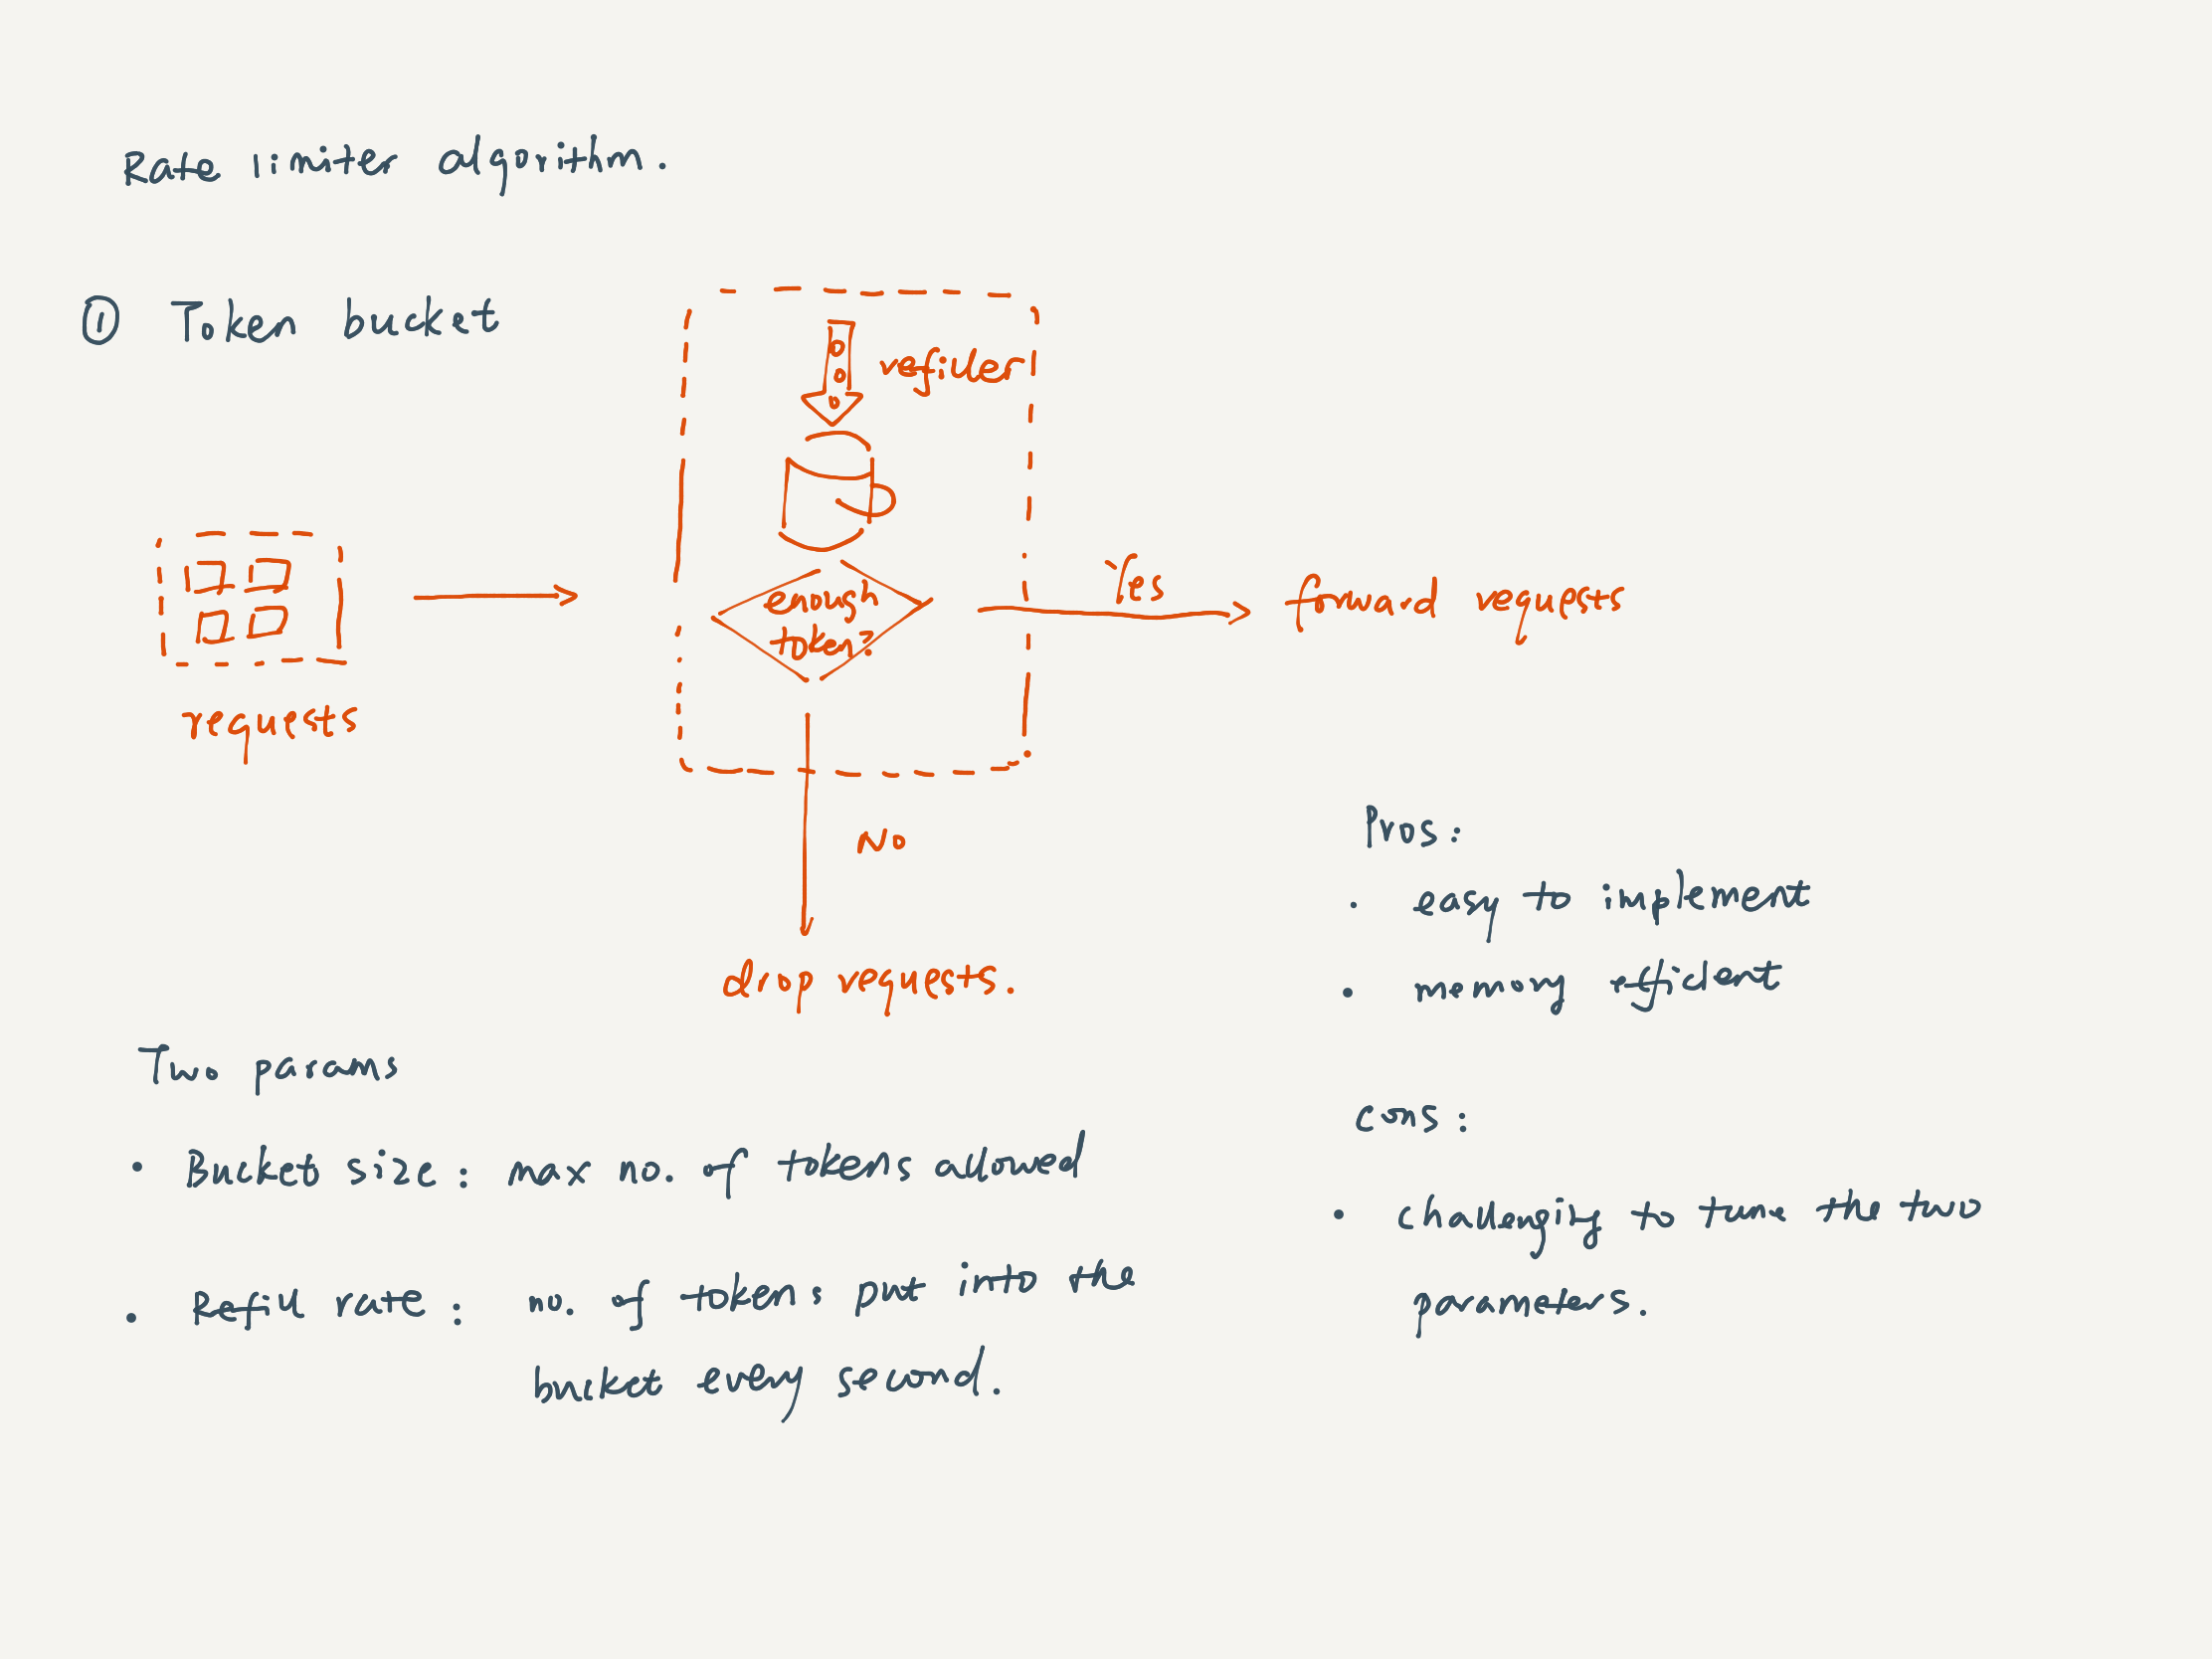 Rate limiter algorithm.
① Token bucket
refiller
enough
token?
requests
Yes
forward requests
No
drop requests.
Two params
• Bucket size: max no. of tokens allowed
• Refill rate: no. of tokens put into the
bucket every second.
Pros:
• easy to implement
• memory efficient
cons:
• challenging to tune the two
parameters.